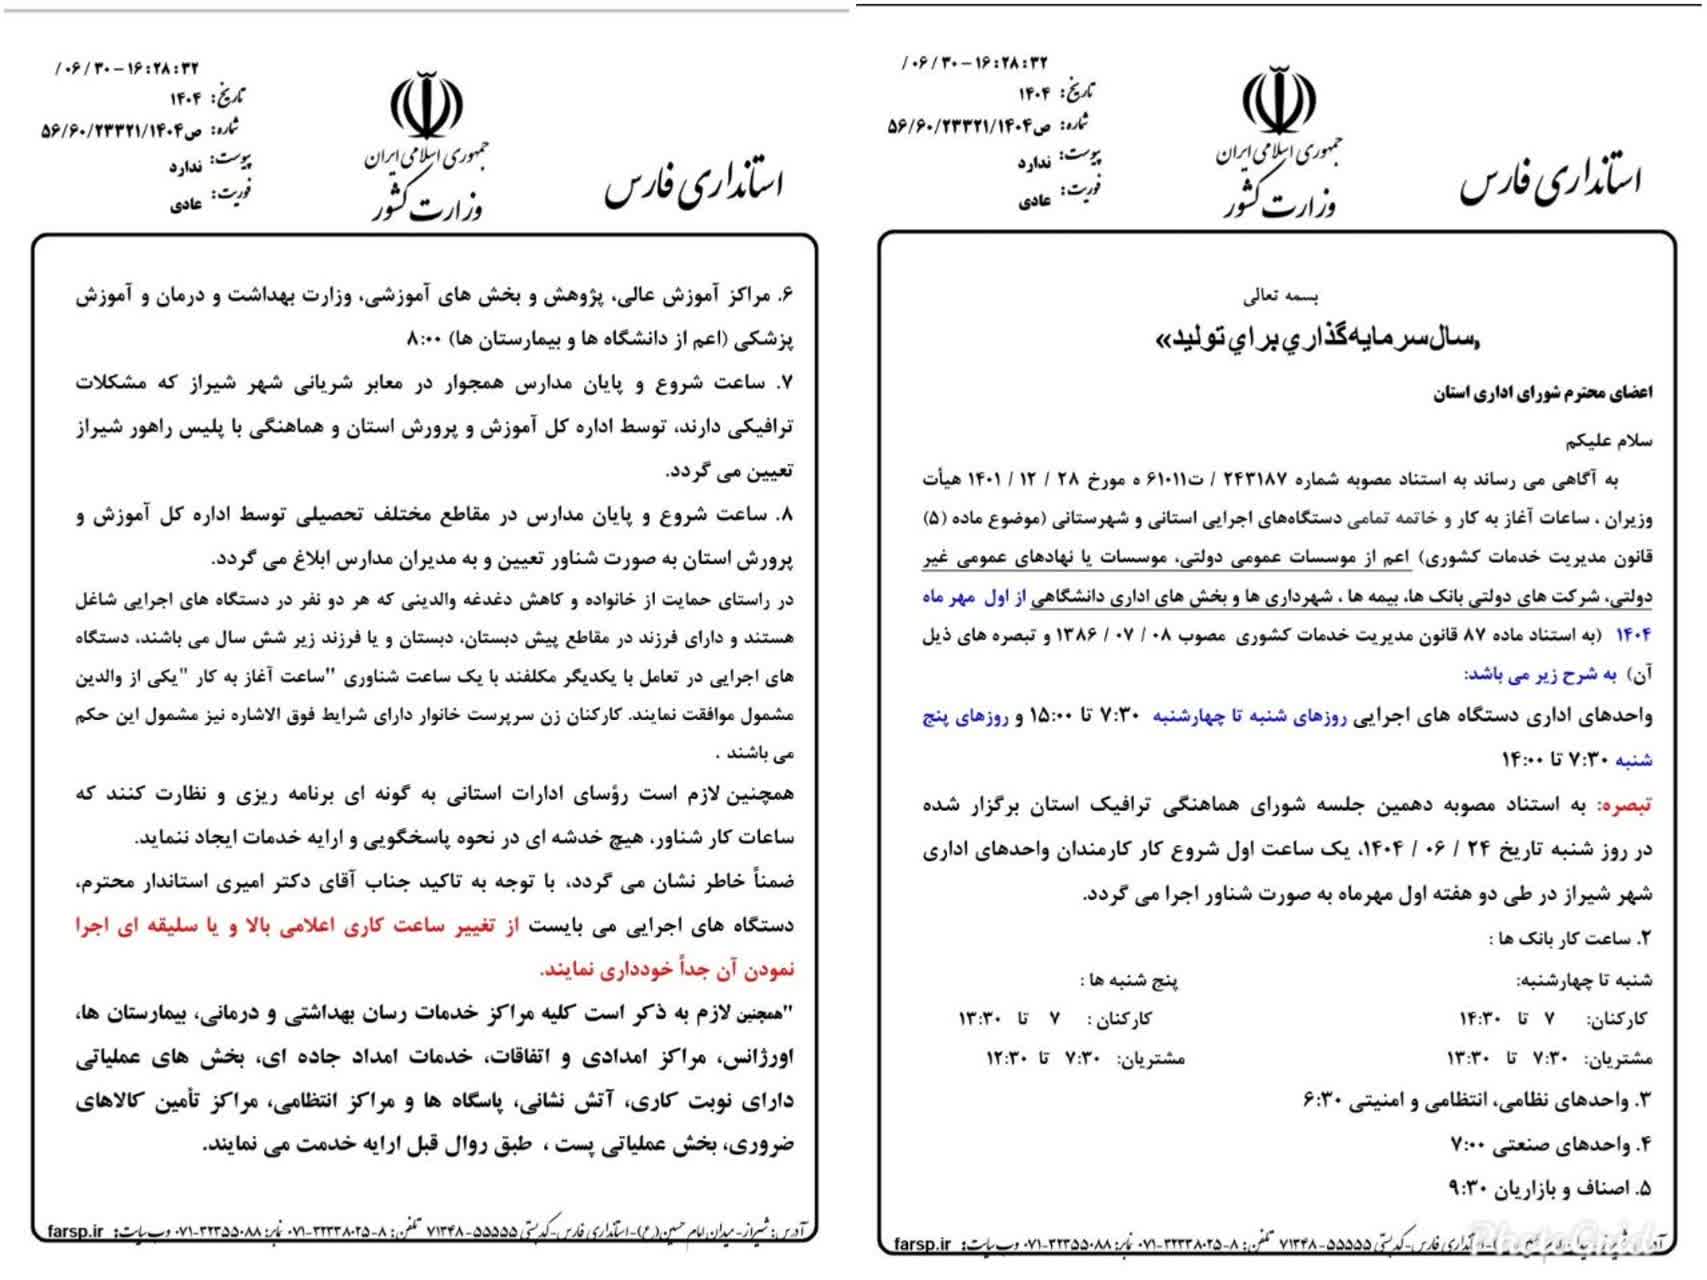 ۱۶:۲۸:۳۲ - ۰۶/۳۰/
تاریخ: ۱۴۰۴
شماره: ۵۶/۶۰/۲۳۳۲۱/ص۱۴۰۴
پیوست: ندارد
فوریت: عادی
جمهوری اسلامی ایران
وزارت کشور
استانداری فارس
بسمه تعالی
«سال سرمایه‌گذاري براي تولید»
اعضای محترم شورای اداری استان
سلام علیکم
به آگاهی می رساند به استناد مصوبه شماره ۲۴۳۱۸۷ / ت۶۱۰۱۱ ه مورخ ۲۸ / ۱۲ / ۱۴۰۱ هیأت
وزیران ، ساعات آغاز به کار و خاتمه تمامی دستگاه‌های اجرایی استانی و شهرستانی (موضوع ماده (۵)
قانون مدیریت خدمات کشوری) اعم از موسسات عمومی دولتی، موسسات یا نهادهای عمومی غیر
دولتی، شرکت های دولتی بانک ها، بیمه ها ، شهرداری ها و بخش های اداری دانشگاهی از اول مهر ماه
۱۴۰۴ (به استناد ماده ۸۷ قانون مدیریت خدمات کشوری مصوب ۰۸ / ۰۷ / ۱۳۸۶ و تبصره های ذیل
آن) به شرح زیر می باشد:
واحدهای اداری دستگاه های اجرایی روزهای شنبه تا چهارشنبه ۷:۳۰ تا ۱۵:۰۰ و روزهای پنج
شنبه ۷:۳۰ تا ۱۴:۰۰
تبصره: به استناد مصوبه دهمین جلسه شورای هماهنگی ترافیک استان برگزار شده
در روز شنبه تاریخ ۲۴ / ۰۶ / ۱۴۰۴، یک ساعت اول شروع کار کارمندان واحدهای اداری
شهر شیراز در طی دو هفته اول مهرماه به صورت شناور اجرا می گردد.
۲. ساعت کار بانک ها :
شنبه تا چهارشنبه: پنج شنبه ها :
کارکنان: ۷ تا ۱۴:۳۰ کارکنان : ۷ تا ۱۳:۳۰
مشتریان: ۷:۳۰ تا ۱۳:۳۰ مشتریان: ۷:۳۰ تا ۱۲:۳۰
۳. واحدهای نظامی، انتظامی و امنیتی ۶:۳۰
۴. واحدهای صنعتی ۷:۰۰
۵. اصناف و بازاریان ۹:۳۰
استانداری فارس-کدپستی ۵۵۵۵۵-۷۱۳۴۸ تلفن: ۸-۳۲۳۳۸۰۲۵-۰۷۱ نمابر: ۳۲۳۵۵۰۸۸-۰۷۱ وب سایت: farsp.ir
PhotoGrid
۱۶:۲۸:۳۲ - ۰۶/۳۰/
تاریخ: ۱۴۰۴
شماره: ۵۶/۶۰/۲۳۳۲۱/ص۱۴۰۴
پیوست: ندارد
فوریت: عادی
جمهوری اسلامی ایران
وزارت کشور
استانداری فارس
۶. مراکز آموزش عالی، پژوهش و بخش های آموزشی، وزارت بهداشت و درمان و آموزش
پزشکی (اعم از دانشگاه ها و بیمارستان ها) ۸:۰۰
۷. ساعت شروع و پایان مدارس همجوار در معابر شریانی شهر شیراز که مشکلات
ترافیکی دارند، توسط اداره کل آموزش و پرورش استان و هماهنگی با پلیس راهور شیراز
تعیین می گردد.
۸. ساعت شروع و پایان مدارس در مقاطع مختلف تحصیلی توسط اداره کل آموزش و
پرورش استان به صورت شناور تعیین و به مدیران مدارس ابلاغ می گردد.
در راستای حمایت از خانواده و کاهش دغدغه والدینی که هر دو نفر در دستگاه های اجرایی شاغل
هستند و دارای فرزند در مقاطع پیش دبستان، دبستان و یا فرزند زیر شش سال می باشند، دستگاه
های اجرایی در تعامل با یکدیگر مکلفند با یک ساعت شناوری "ساعت آغاز به کار "یکی از والدین
مشمول موافقت نمایند. کارکنان زن سرپرست خانوار دارای شرایط فوق الاشاره نیز مشمول این حکم
می باشند .
همچنین لازم است رؤسای ادارات استانی به گونه ای برنامه ریزی و نظارت کنند که
ساعات کار شناور، هیچ خدشه ای در نحوه پاسخگویی و ارایه خدمات ایجاد ننماید.
ضمناً خاطر نشان می گردد، با توجه به تاکید جناب آقای دکتر امیری استاندار محترم،
دستگاه های اجرایی می بایست از تغییر ساعت کاری اعلامی بالا و یا سلیقه ای اجرا
نمودن آن جداً خودداری نمایند.
"همچنین لازم به ذکر است کلیه مراکز خدمات رسان بهداشتی و درمانی، بیمارستان ها،
اورژانس، مراکز امدادی و اتفاقات، خدمات امداد جاده ای، بخش های عملیاتی
دارای نوبت کاری، آتش نشانی، پاسگاه ها و مراکز انتظامی، مراکز تأمین کالاهای
ضروری، بخش عملیاتی پست ، طبق روال قبل ارایه خدمت می نمایند.
آدرس: شیراز- میدان امام حسین(ع)-استانداری فارس-کدپستی ۵۵۵۵۵-۷۱۳۴۸ تلفن: ۸-۳۲۳۳۸۰۲۵-۰۷۱ نمابر: ۳۲۳۵۵۰۸۸-۰۷۱ وب سایت: farsp.ir